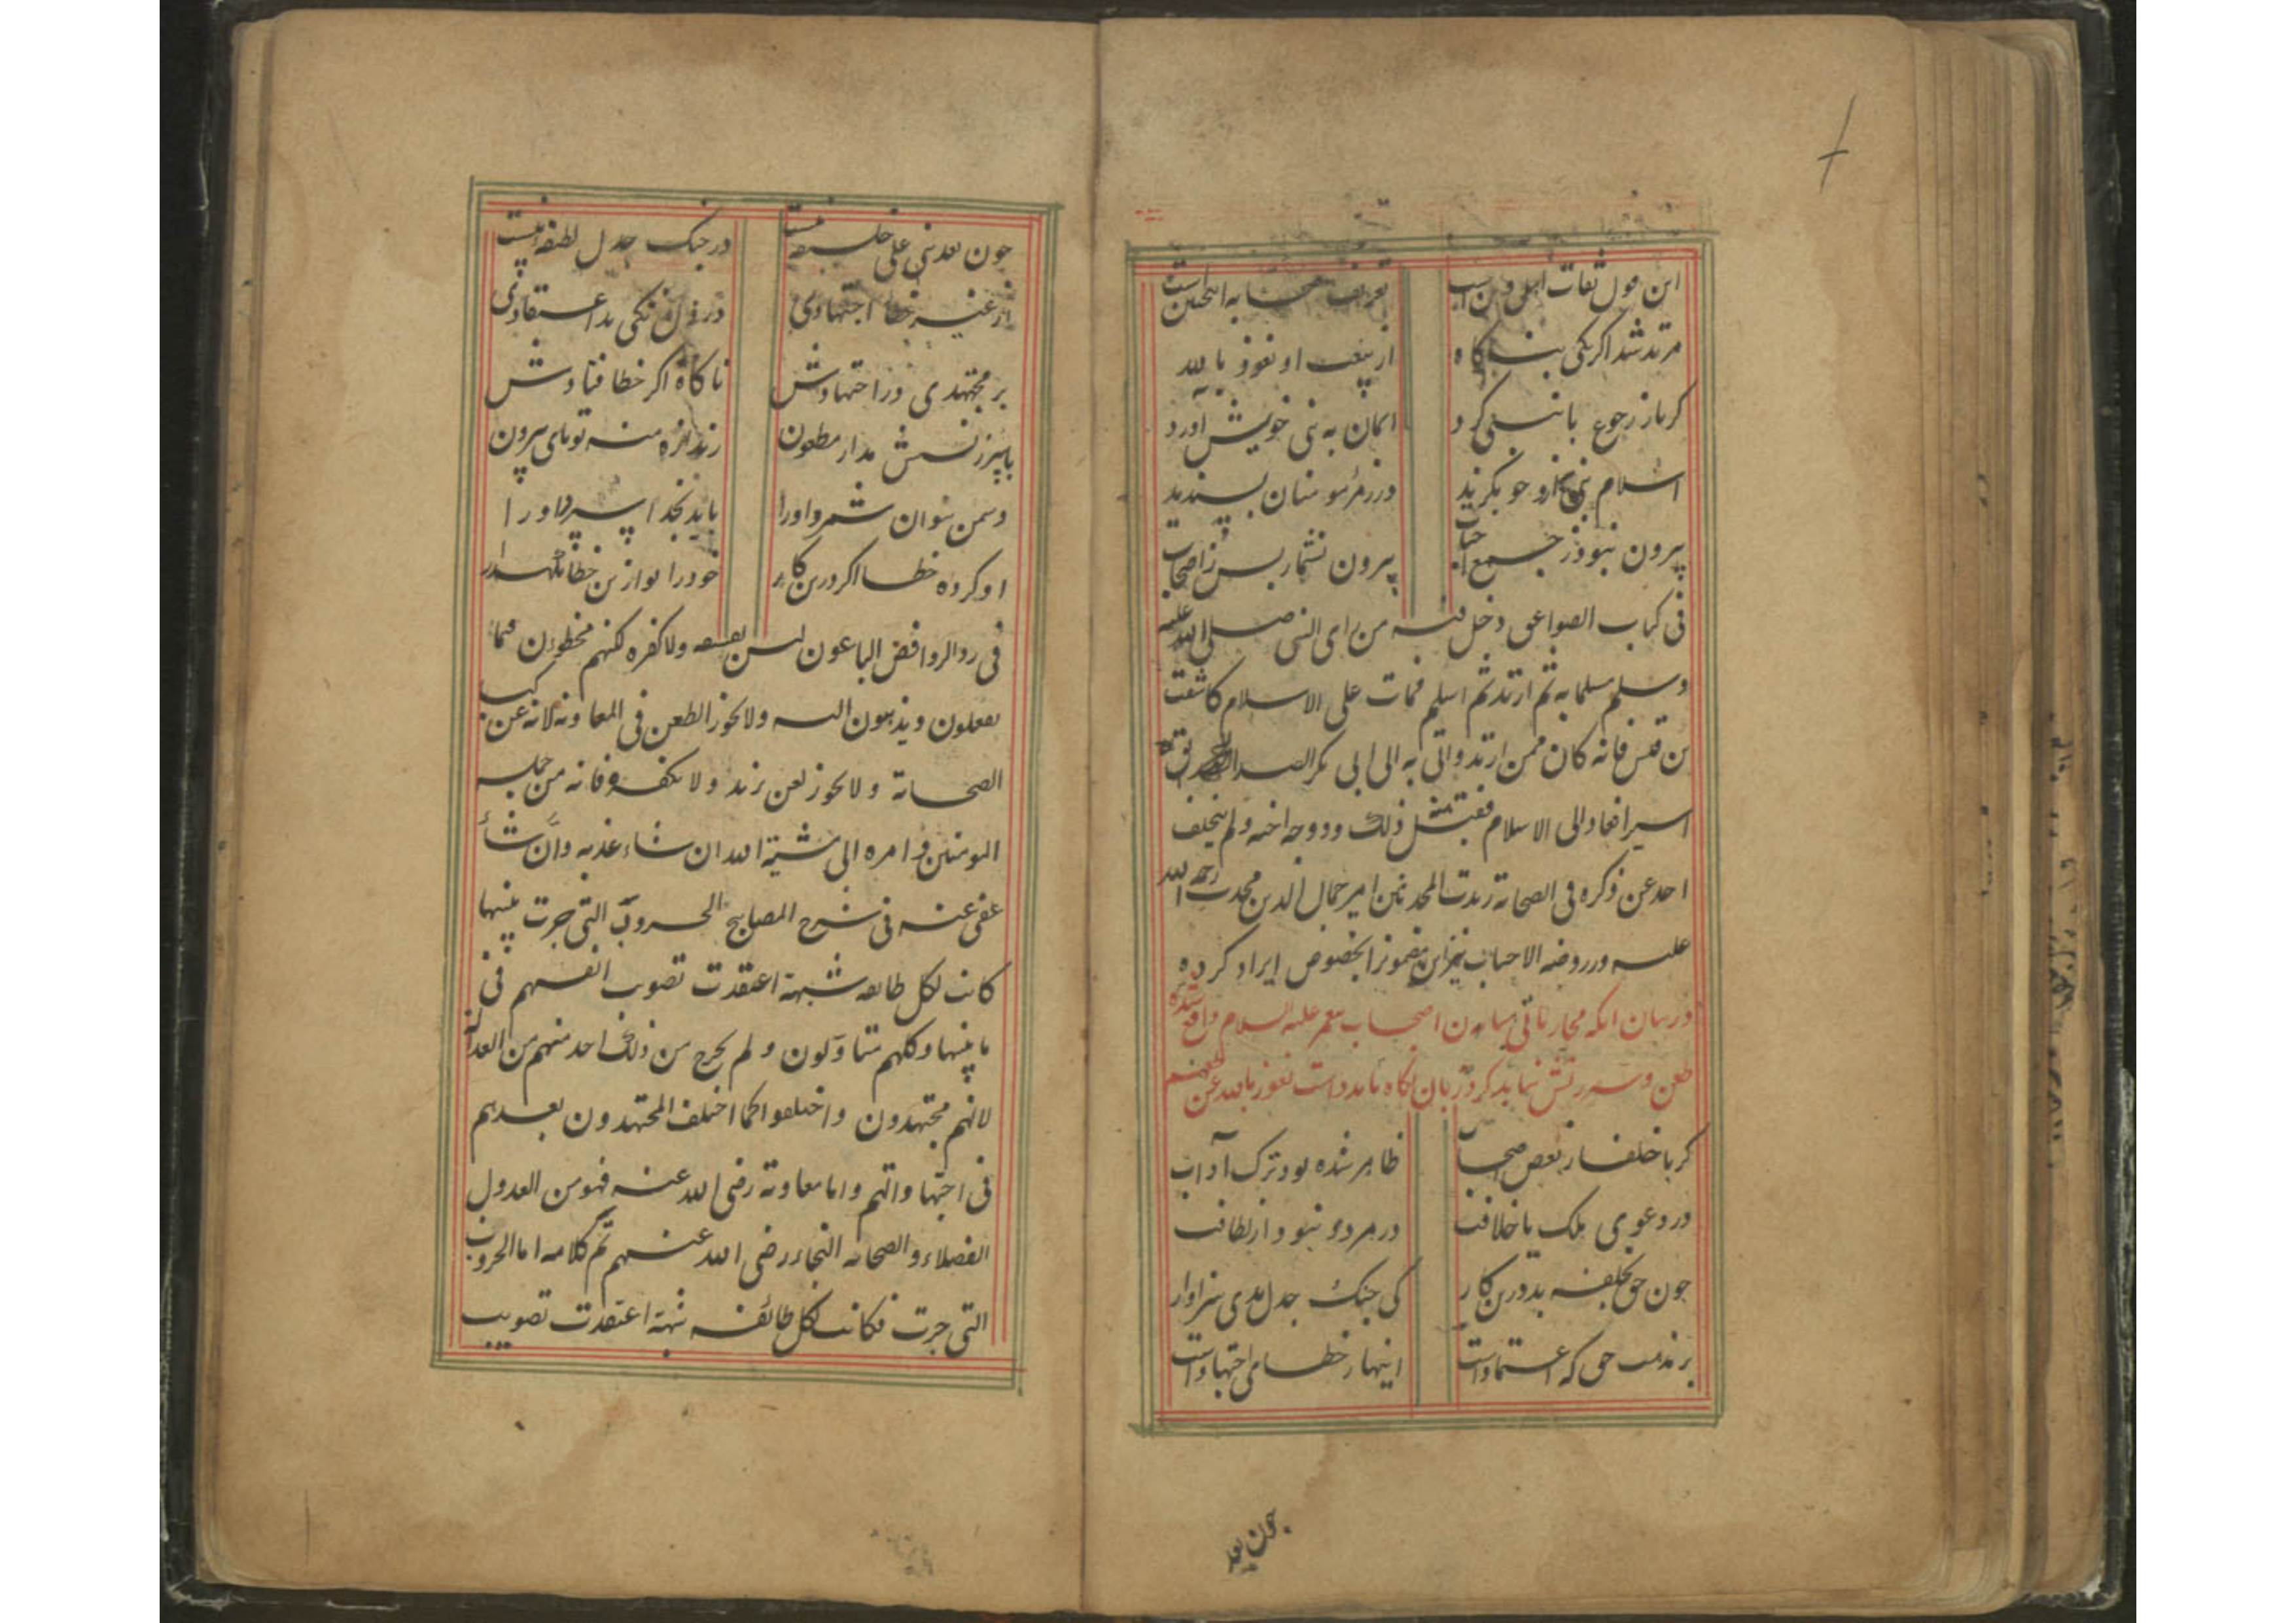 این قول ثقات اهل دین است تعریف صحابه اینچنین است
مرتد شد اگر یکی بناگاه از بیعت او نعوذ بالله
گر باز رجوع با نبی کرد ایمان به نبی خویش آورد
اسلام نبی چو بگزید در زمرهٔ مومنان پسندید
بیرون نبود ز جمع احباب بیرون نشمار پس ز اصحاب
فی کتاب الصواعق دخل فیه من رای النبی صلی الله علیه
وسلم مسلما به ثم ارتد ثم اسلم فمات علی الاسلام کاشعث
بن قیس فانه کان ممن ارتد واتی به الی ابی بکر الصدیق
اسیرا فعاد الی الاسلام فقبل منه ذلک وزوجه اخته ولم یتخلف
احد عن ذکره فی الصحابة زبدت المحدثین امیر جمال الدین محدث رحمة الله
علیه در روضه الاحباب نیز این مضمون را بخصوص ایراد کرده
در بیان انکه محارباتی میان اصحاب پیغمبر علیه السلام واقع شده
طعن و سرزنش نباید کرد زبان نگاه باید داشت نعوذ بالله عن
گر با خلفا ز بعض اصحاب ظاهر شده بود ترک آداب
در دعوی ملک یا خلافت در مردی نبود از لطافت
چون حق بخلیفه بد درین کار کی جنک جدل بدی سزاوار
بر مذهب حق که اعتماد است اینها ز خطای اجتهاد است
چون بعد
چون بعد نبی علی خلیفه است در جنک جدل لطیفه نیست
از غیر خطا اجتهادی در دل نکنی بد اعتقادی
بر مجتهدی در اجتهادش ناکاه اکر خطا فتادش
با سرزنشش مدار مطعون زاندازه منه تو پای بیرون
دشمن نتوان شمرد او را باید بخدا سپرد او را
او کرده خطا اکر درین کار خود را تو ازین خطا نکهدار
فی رد الروافض الباغون لیس بفسقه ولا کفره لکنهم مخطؤن فیما
یفعلون ویذهبون الیه ولا یجوز الطعن فی المعاویه لانه من کبار
الصحابة ولا یجوز لعن یزید ولا تکفیره فانه من جمله
المومنین وامره الی مشیة الله ان شاء عذبه وان شاء
عفی عنه فی شرح المصابیح الحروب التی جرت بینها
کانت لکل طایفه شبهة اعتقدت تصویب انفسهم فی
ما بینها وکلهم متاولون ولم یخرج من ذلک احد منهم من العدالة
لانهم مجتهدون واختلفوا کما اختلف المجتهدون بعدهم
فی اجتهاداتهم واما معاویة رضی الله عنه فهو من العدول
الفضلاء والصحابه النجباء رضی الله عنهم تم کلامه اما الحروب
التی جرت فکانت لکل طائفه شبهة اعتقدت تصویب